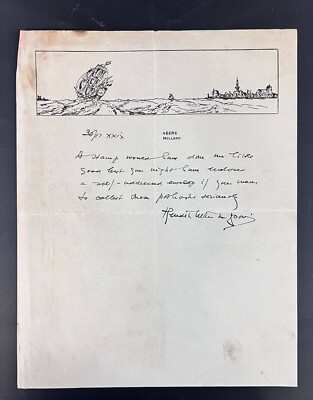 VEERE
HOLLAND
A stamp would have done me little
good but you might have enclosed
a self-addressed envelop if you mean
to collect these seriously
Hendrik Willem van Loon